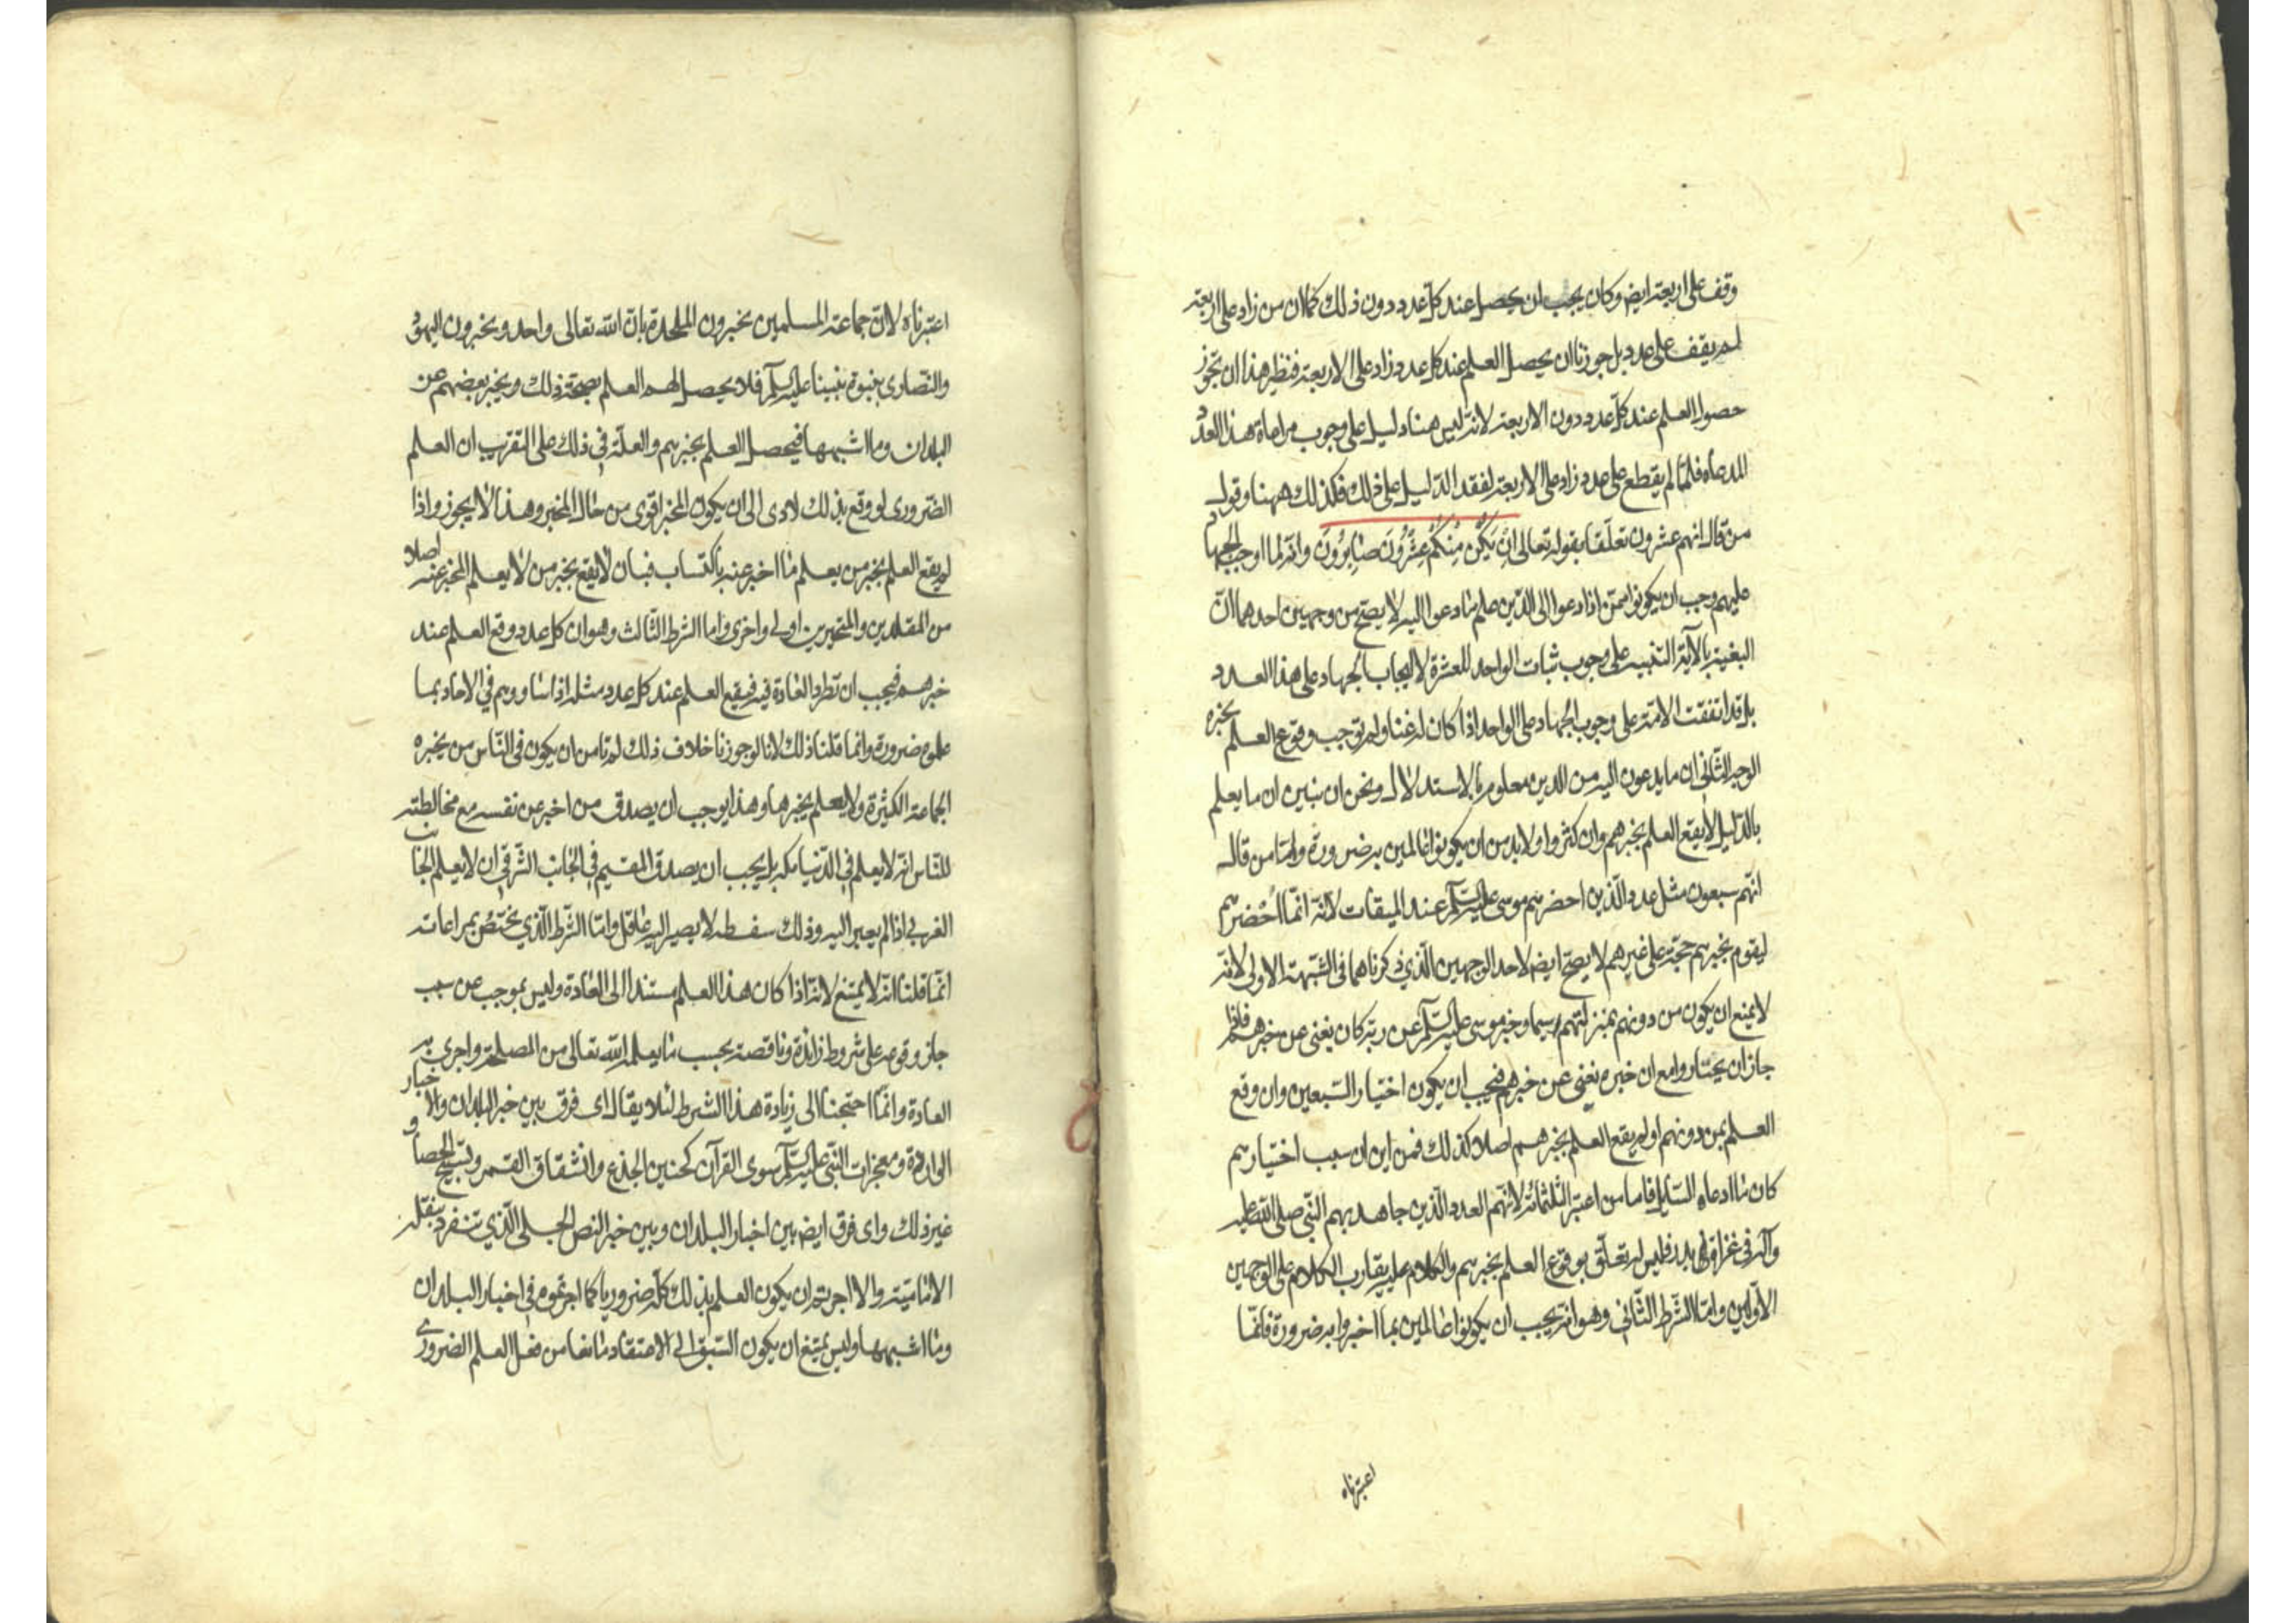 وقف على اربعة ايض وكان يجب ان يحصل عند كل عدد دون ذلك كما ان من زاد على اربعة
لم يقف على عدد بل جوزنا ان يحصل العلم عند كل عدد زاد على الاربعة فنظير هذا ان تجوز
حصول العلم عند كل عدد دون الاربعة لانه ليس هنا دليل على وجوب مراعاة هذا العدد
المدعاه فلما لم يقطع على عدد زاد على الاربعة لفقد الدليل على ذلك فكذلك ههنا وقول
من قال انهم عشرون تعلقا بقوله تعالى اِنْ يَكُنْ مِنْكُمْ عِشْرُونَ صٰابِرُونَ وانه لما اوجب الجهاد
عليهم وجب ان يكونوا ممن اذا دعوا الى الدين علم ما دعوا اليه لا يصح من وجهين احدهما ان
البغية بالآية التنبيه على وجوب ثبات الواحد للعشرة لا ايجاب الجهاد على هذا العدد
بل قد اتفقت الامة على وجوب الجهاد على الواحد اذا كان له غنا ولم توجب وقوع العلم بخبره
الوجه الثاني ان ما يدعون اليه من الدين معلوم بالاستدلال ونحن ان نبين ان ما يعلم
بالدليل لا يقع العلم بخبرهم وان كثروا ولا بد من ان يكونوا عالمين به ضرورة واما من قال
انهم سبعون مثل عدد الذين احضرهم موسى عليه السلم عند الميقات لانه انما احضرهم
ليقوم بخبرهم حجة على غيرهم لا يصح ايضا لاحد الوجهين الذي ذكرناهما في الشبهة الاولى لانه
لا يمنع ان يكون من دونهم بمنزلتهم سيما وخبر موسى عليه السلم عن ربه كان يغنى عن خبرهم فاذا
جاز ان يختاروا مع ان خبره يغنى عن خبرهم فيجب ان يكون اختيار السبعين وان وقع
العلم بمن دونهم او لم يقع العلم بخبرهم اصلا كذلك فمن اين ان سبب اختيارهم
كان ما ادعاه السايل فاما من اعتبر الثلثمائة لانهم العدد الذين جاهد بهم النبي صلى الله عليه
وآله في غزاة بدر فليس له تعلق بوقوع العلم بخبرهم والكلام عليه يقارب الكلام على الوجهين
الاولين واما الشرط الثاني وهو انه يجب ان يكونوا عالمين بما اخبروا به ضرورة فانما
اعتبرناه
اعتبرناه لان جماعة المسلمين يخبرون الملحدة بان الله تعالى واحد ويخبرون اليهود
والنصارى بنبوة نبينا عليه السلم فلا يحصل لهم العلم بصحة ذلك ويخبر بعضهم عن
البلدان وما اشبهها فيحصل العلم بخبرهم والعلة في ذلك على التقريب ان العلم
الضرورى لو وقع بذلك لادى الى ان يكون المخبر اقوى من حال المخبر وهذا لا يجوز واذا
لم يقع العلم بخبر من يعلم ما اخبر عنه باكتساب فبان لا يقع بخبر من لا يعلم المخبر عنه اصلا
من المقلدين والمتحيرين اولى واحرى واما الشرط الثالث وهو ان كل عدد وقع العلم عند
خبرهم فيجب ان تطرد العادة فيه فيقع العلم عند كل عدد مثله اذا ساووهم في الاخبار بما
علموه ضرورة وانما قلنا ذلك لانا لو جوزنا خلاف ذلك لم نامن ان يكون في الناس من يخبره
الجماعة الكثيرة ولا يعلم بخبرها وهذا يوجب ان يصدق من اخبر عن نفسه مع مخالطته
للناس انه لا يعلم في الدنيا مكه بل يجب ان يصدق المقيم في الجانب الشرقي ان لا يعلم الجانب
الغربي اذا لم يعبر اليه وذلك سفسطه لا يصير اليه عاقل واما الشرط الذي نختص بمراعاته
انما قلنا انه لا يمتنع لانه اذا كان هذا العلم مستندا الى العادة وليس بموجب عن سبب
جاز وقوعه على شروط زائدة وناقصة بحسب ما يعلمه الله تعالى من المصلحة واجرى به
العادة وانما احتجنا الى زيادة هذا الشرط لئلا يقال اى فرق بين خبر البلدان والاخبار
الواردة ومعجزات النبي عليه السلم سوى القرآن كحنين الجذع وانشقاق القمر وتسبيح الحصا و
غير ذلك واى فرق ايض بين اخبار البلدان وبين خبر النص الجلى الذي تنفرد بنقله
الامامية والا اجزتم ان يكون العلم بذلك كله ضروريا كما اجزتموه في اخبار البلدان
وما اشبهها وليس يمتنع ان يكون السبق الى الاعتقاد مانعا من فعل العلم الضروري